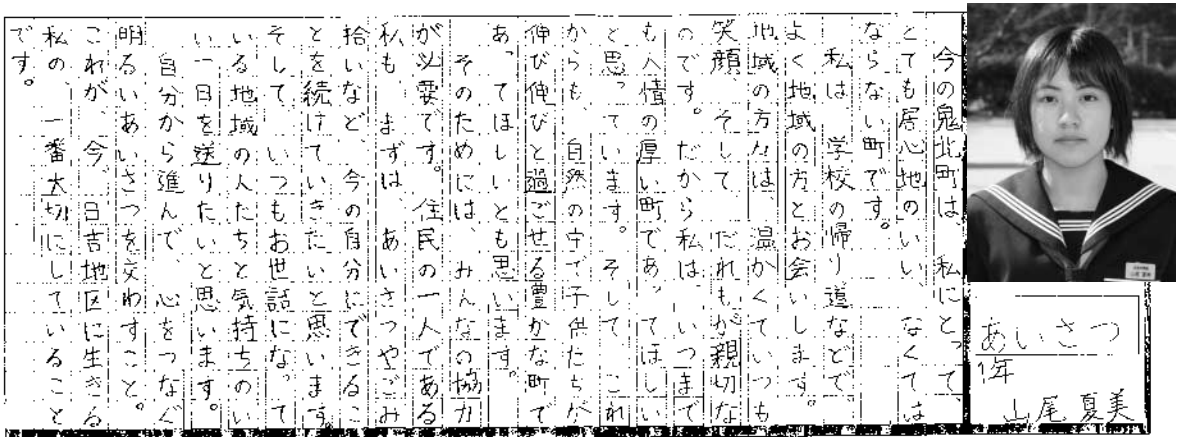 あいさつ
1年
山尾 夏美
今の鬼北町は、私にとって、
とても居心地のいい、なくては
ならない町です。
私は、学校の帰り道などで
よく地域の方とお会いします。
地域の方々は、温かくていつも
笑顔、そして、だれもが親切な
のです。だから私は、いつまで
も人情の厚い町であってほしい
と思っています。そして、これ
からも、自然の中で子供たちが
伸び伸びと過ごせる豊かな町で
あってほしいとも思います。
そのためには、みんなの協力
が必要です。住民の一人である
私も、まずは、あいさつやごみ
拾いなど、今の自分にできるこ
とを続けていきたいと思います。
そして、いつもお世話になって
いる地域の人たちと気持ちのい
い一日を送りたいと思います。
自分から進んで、心をつなぐ
明るいあいさつを交わすこと。
これが、今、日吉地区に生きる
私の、一番大切にしていること
です。